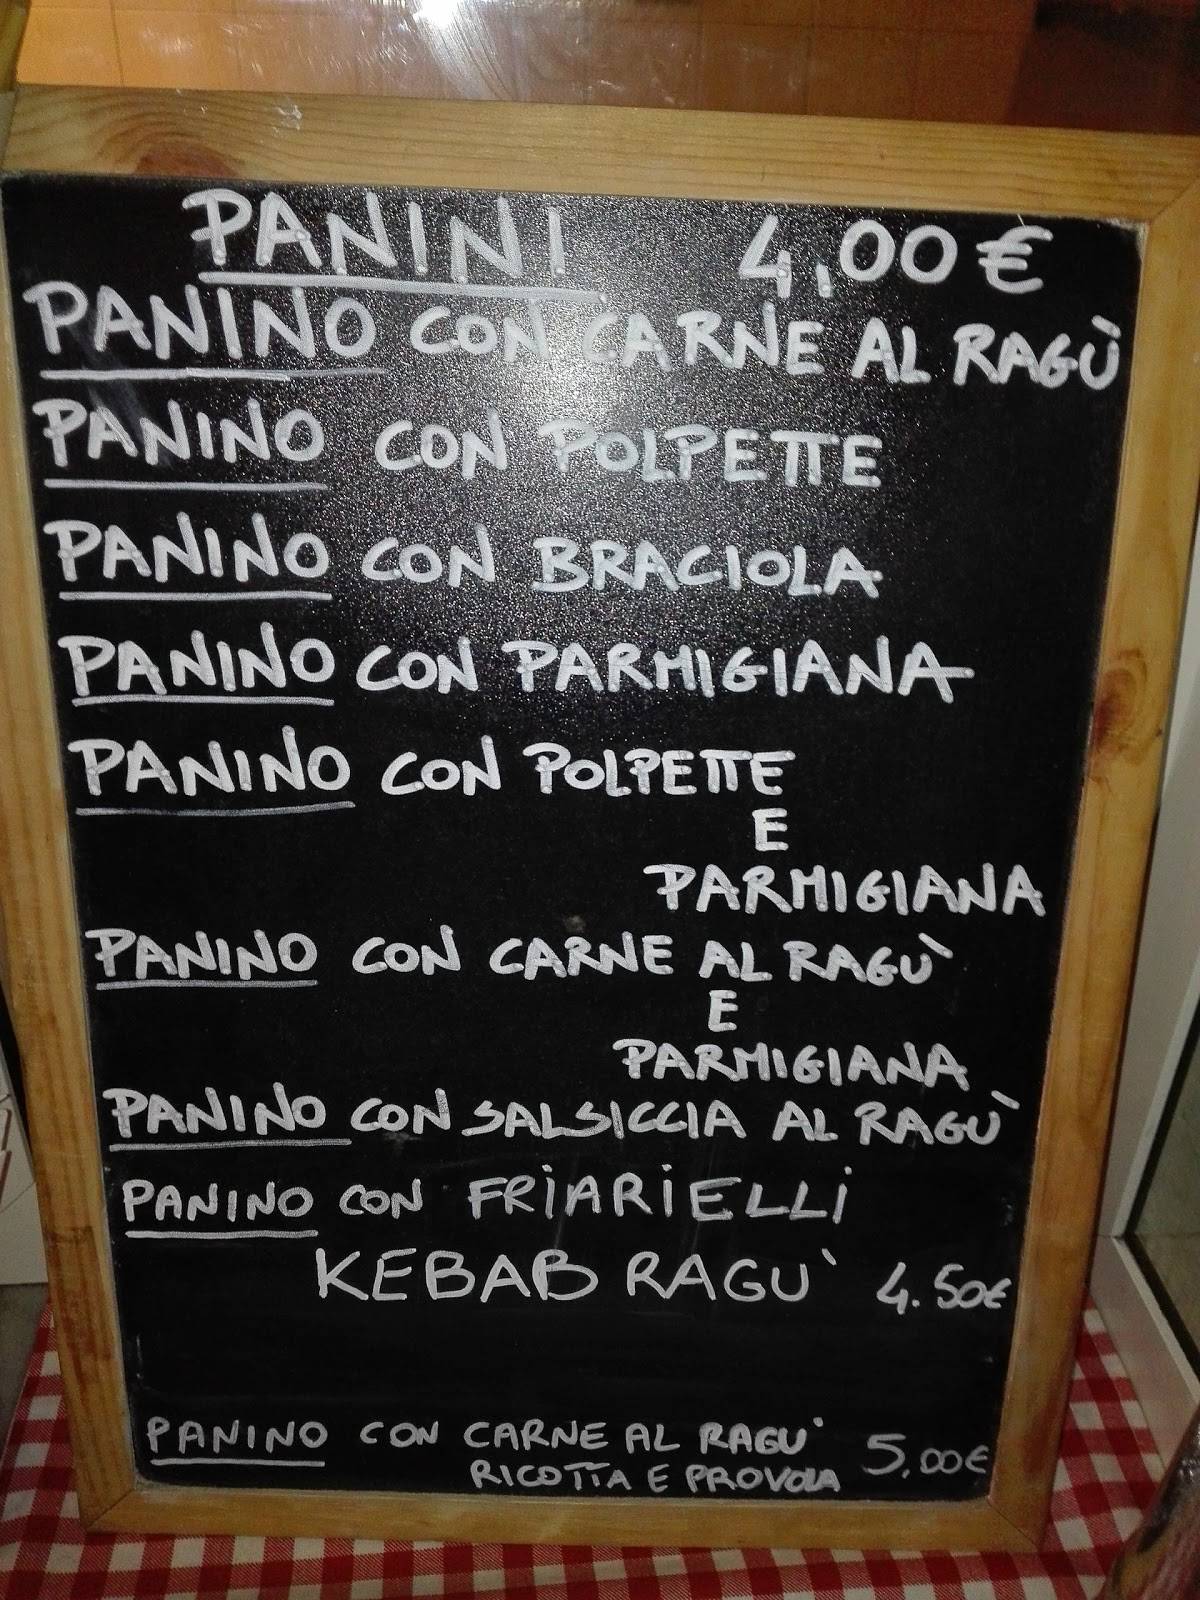 PANINI 4,00 €
PANINO CON CARNE AL RAGÙ
PANINO CON POLPETTE
PANINO CON BRACIOLA
PANINO CON PARMIGIANA
PANINO CON POLPETTE
E
PARMIGIANA
PANINO CON CARNE AL RAGÙ
E
PARMIGIANA
PANINO CON SALSICCIA AL RAGÙ
PANINO CON FRIARIELLI
KEBAB RAGU' 4.50€
PANINO CON CARNE AL RAGU'
RICOTTA E PROVOLA 5,00€